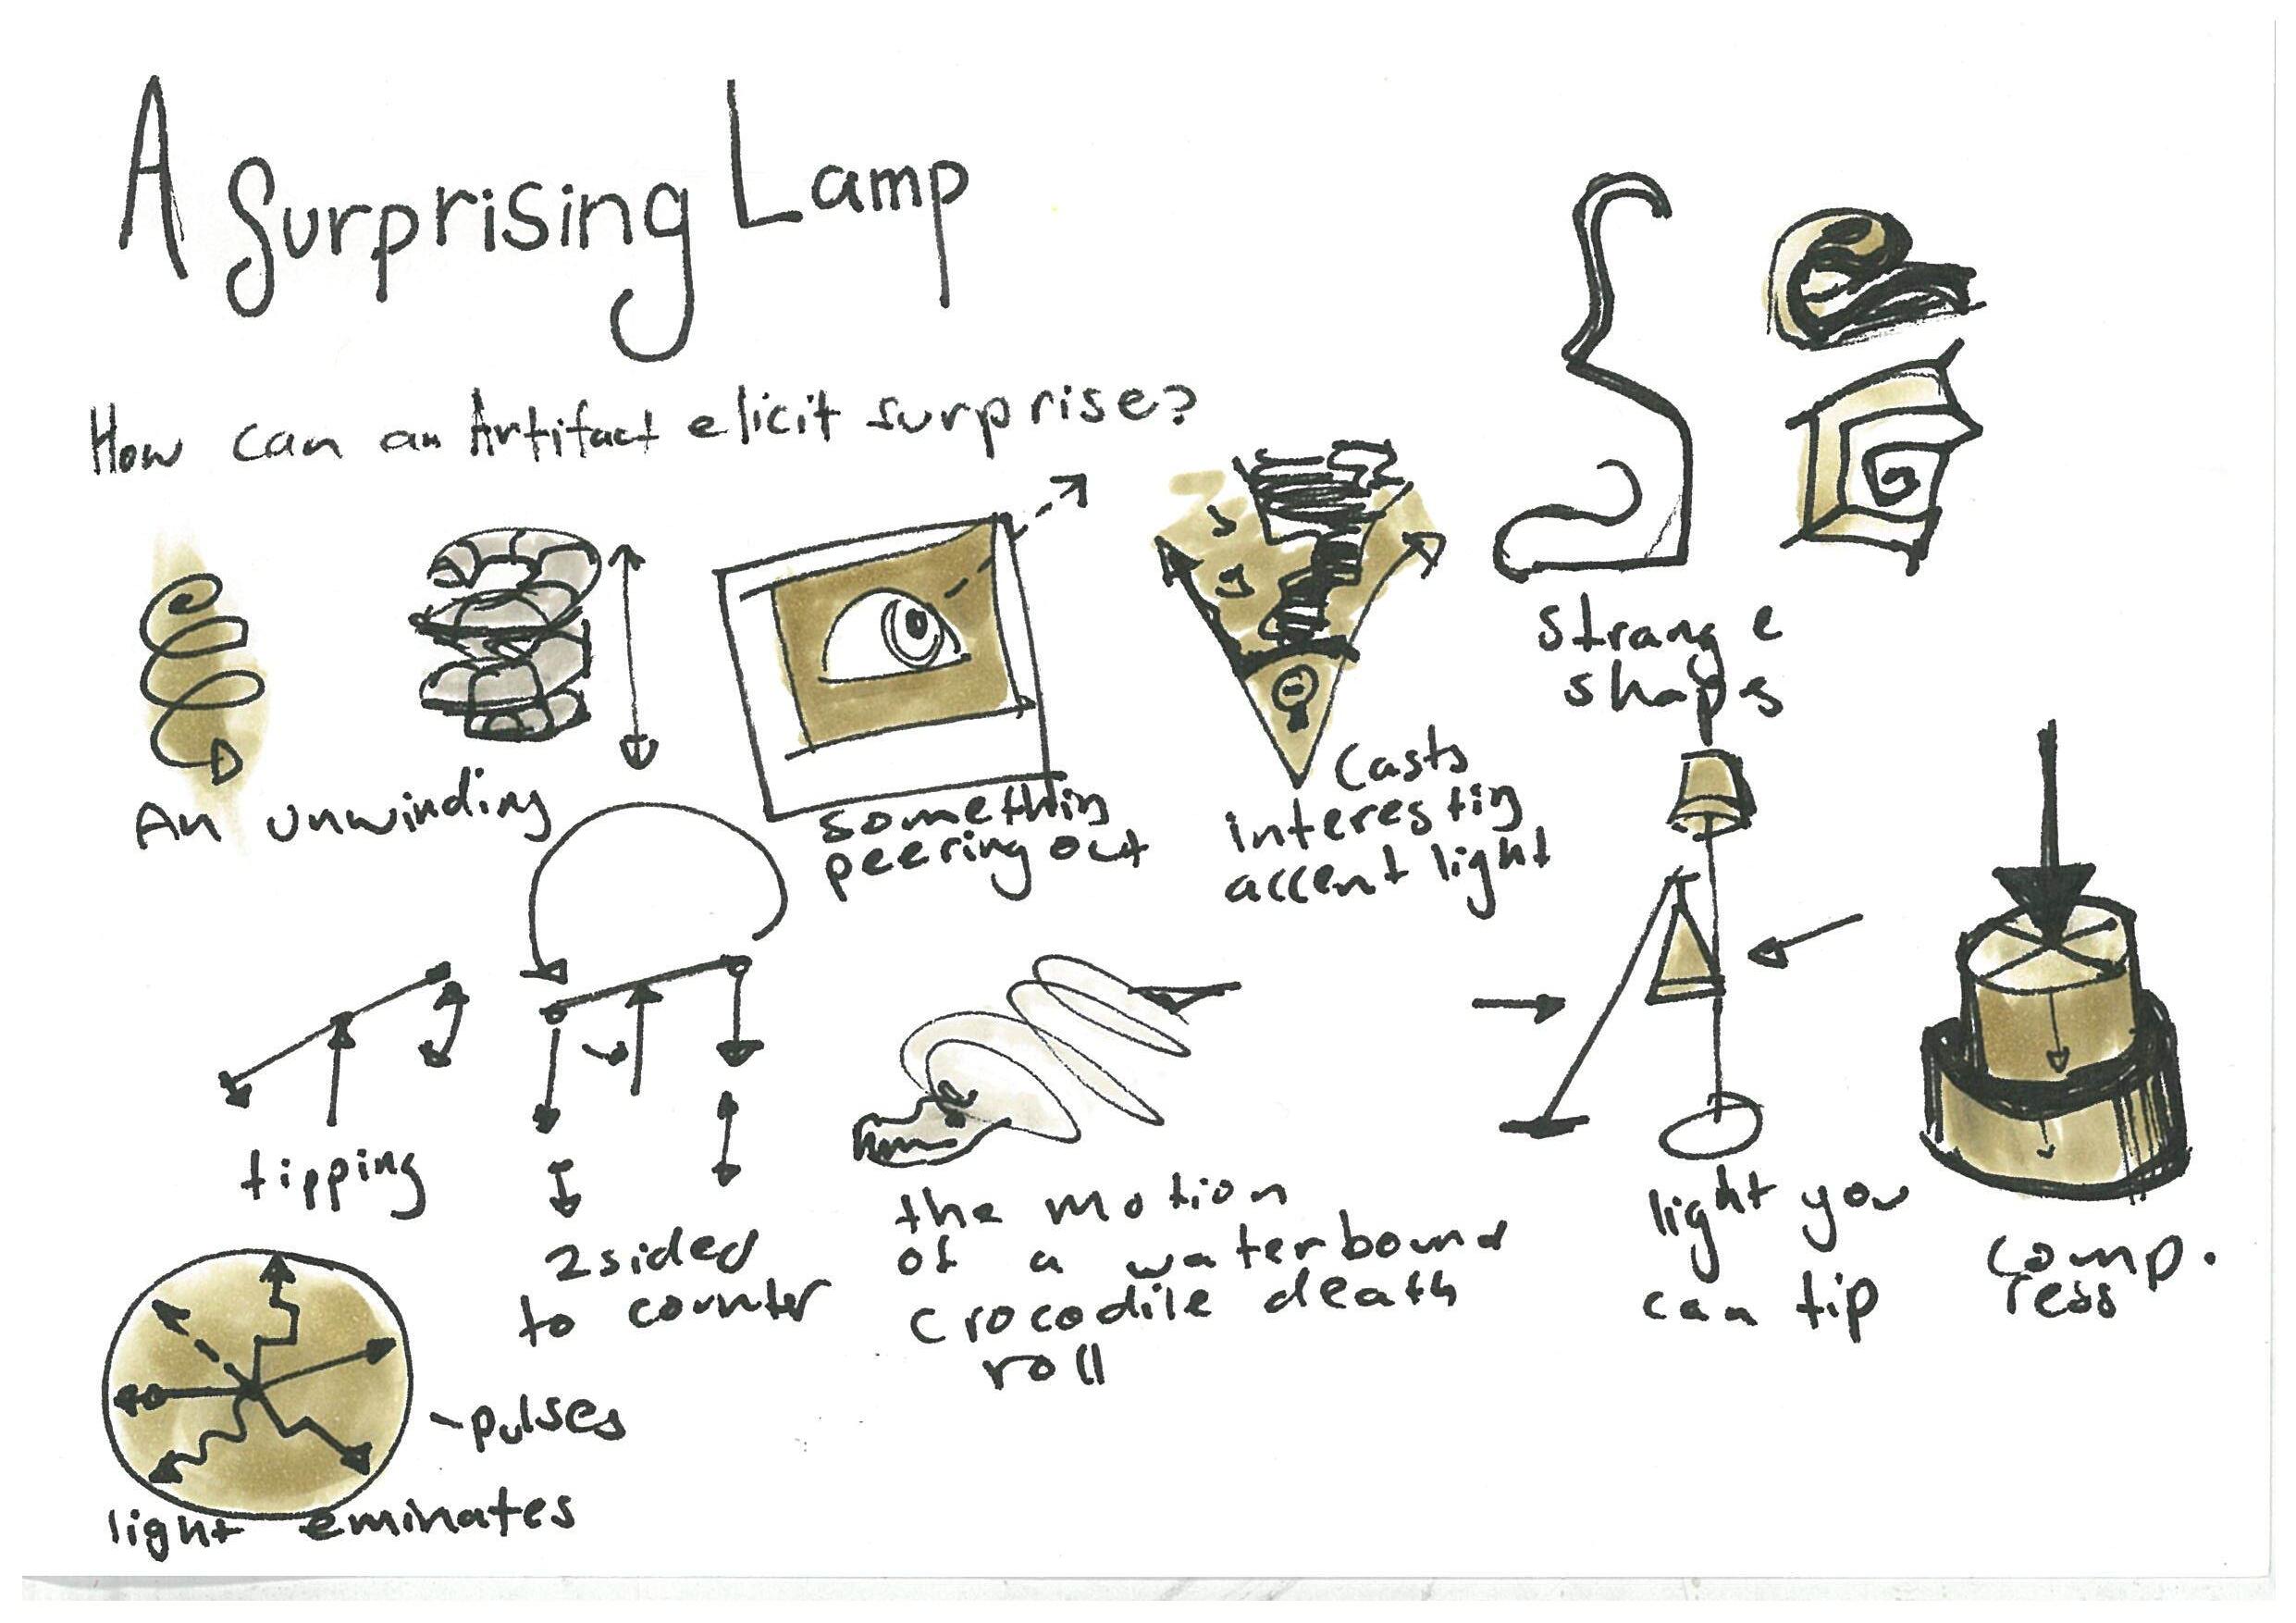 A Surprising Lamp
How can an Artifact elicit surprise?
An unwinding
somethin
peering out
Casts
interestin
accent light
strange
shapes
tipping
2sided
to counter
the motion
of a waterbound
crocodile death
roll
light you
can tip
comp.
ress
-pulses
light eminates